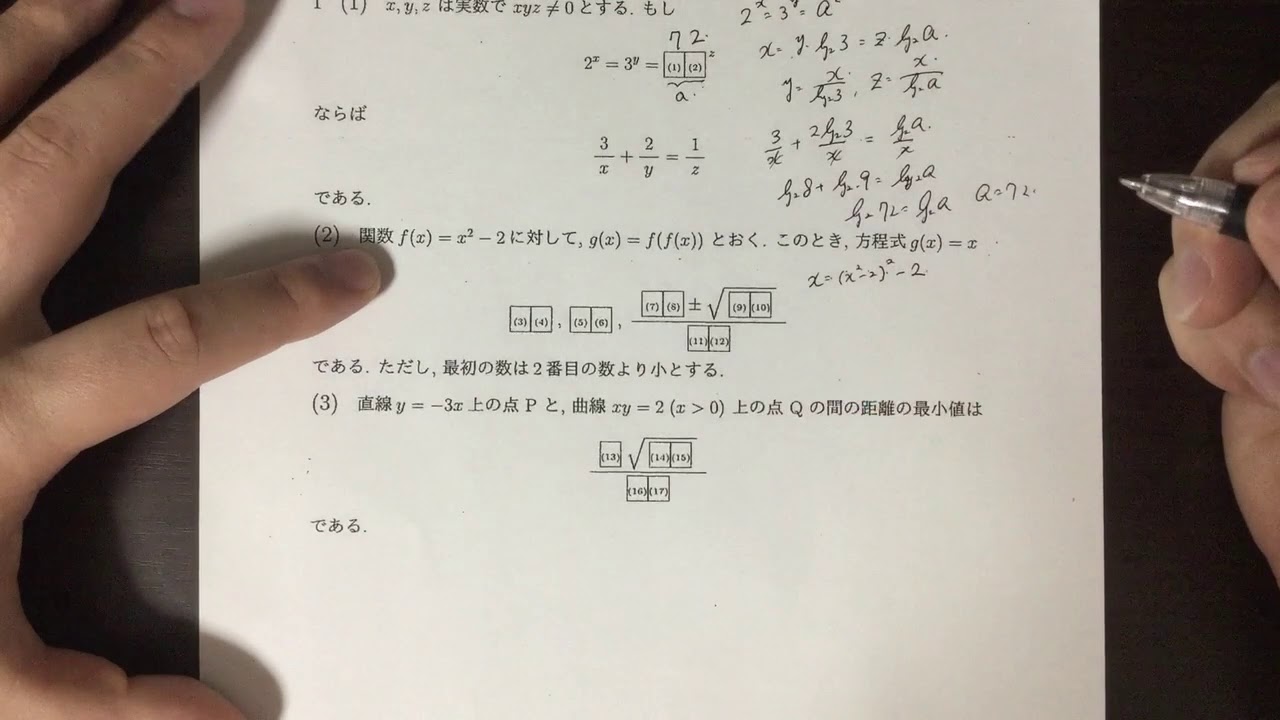 1 (1) x, y, z は実数で xyz ≠ 0 とする. もし
2^x = 3^y = a
72.
2^x = 3^y = (1)(2)^z
a.
x = y log₂3 = z log₂a.
y = x/log₂3, z = x/log₂a
ならば
3/x + 2/y = 1/z
3/x + 2log₂3/x = log₂a/x
log₂8 + log₂9 = log₂a
log₂72 = log₂a a=72.
である.
(2) 関数 f(x) = x² − 2 に対して, g(x) = f(f(x)) とおく. このとき, 方程式 g(x) = x
x = (x²−2)² − 2
(3)(4) , (5)(6) , (7)(8) ± √(9)(10) / (11)(12)
である. ただし, 最初の数は 2 番目の数より小とする.
(3) 直線 y = −3x 上の点 P と, 曲線 xy = 2 (x > 0) 上の点 Q の間の距離の最小値は
(13) √(14)(15) / (16)(17)
である.